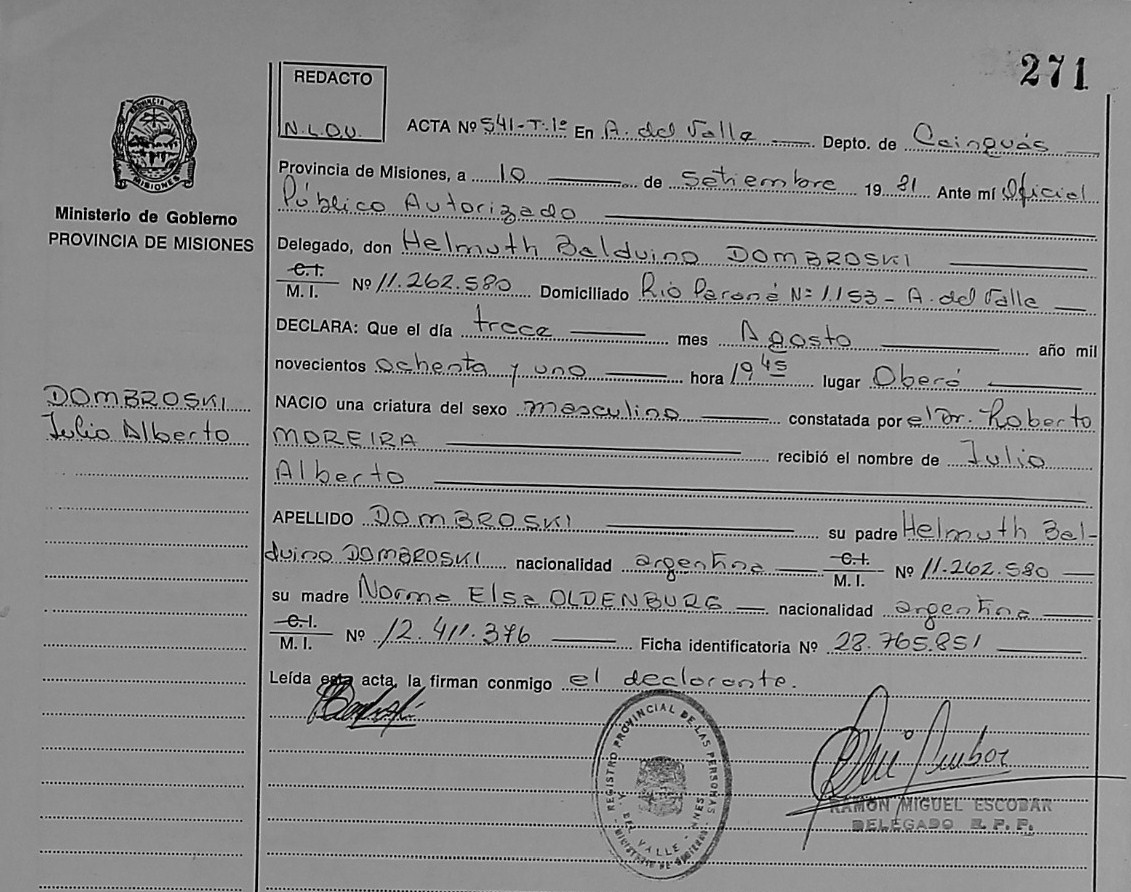 271
REDACTO
N.L.O.V.
PROVINCIA DE
MISIONES
Ministerio de Gobierno
PROVINCIA DE MISIONES
ACTA Nº 541-T-1º En A. del Valle Depto. de Cainguás
Provincia de Misiones, a 10 de Setiembre 19 81 Ante mí Oficial
Público Autorizado
Delegado, don Helmuth Balduino DOMBROSKI
C.I.
M. I. Nº 11.262.580 Domiciliado Río Paraná Nº 1.153 - A. del Valle
DECLARA: Que el día trece mes Agosto año mil
novecientos ochenta y uno hora 19 45 lugar Oberá
DOMBROSKI
Julio Alberto
NACIO una criatura del sexo masculino constatada por el Dr. Roberto
MOREIRA recibió el nombre de Julio
Alberto
APELLIDO DOMBROSKI su padre Helmuth Bal-
duino DOMBROSKI nacionalidad argentina C.I.
M. I. Nº 11.262.580
su madre Norma Elsa OLDENBURG nacionalidad argentina
C.I.
M. I. Nº 12.411.376 Ficha identificatoria Nº 28.765.851
Leída esta acta, la firman conmigo el declarante.
REGISTRO PROVINCIAL DE LAS PERSONAS
DEL VALLE - MNES
MINISTERIO DE GOBIERNO
RAMON MIGUEL ESCOBAR
DELEGADO R. P. P.